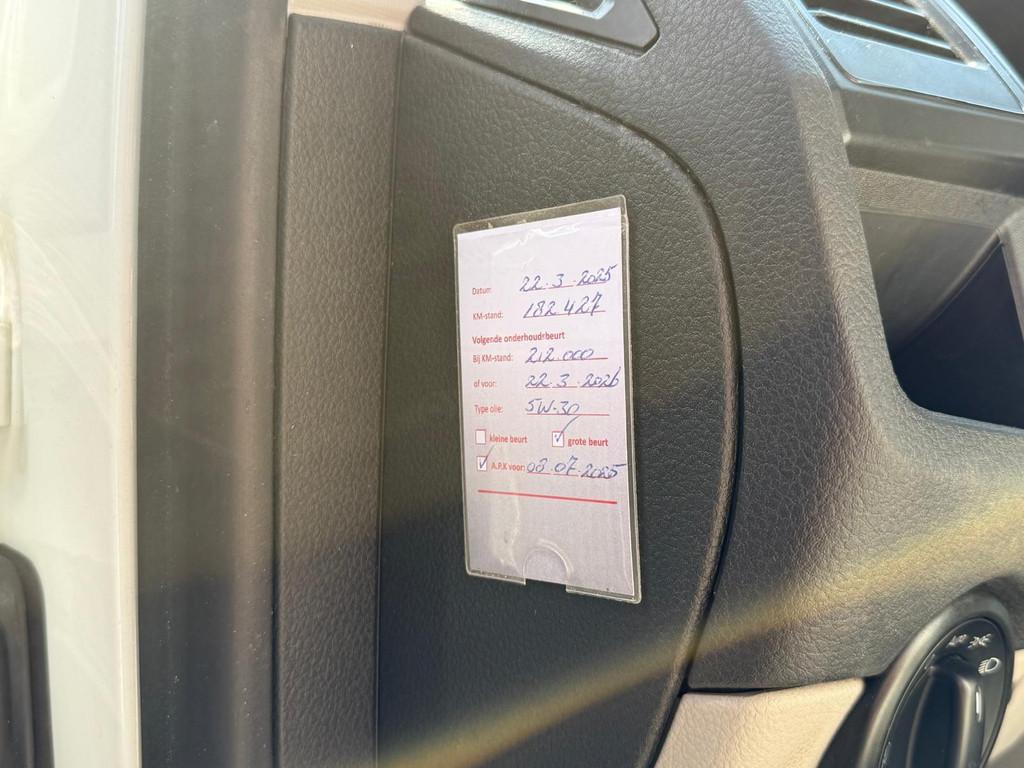 Datum: 22.3.2025
KM-stand: 182.427
Volgende onderhoudsbeurt
Bij KM-stand: 212.000
of voor: 22.3.2026
Type olie: 5W-30
kleine beurt grote beurt
A.P.K voor: 08.07.2025
AUTO